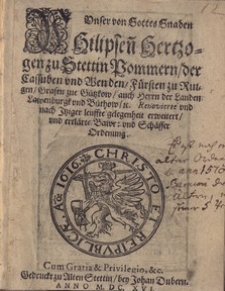 Unser von Gottes Gnaden
Philipsen Hertzo-
gen zu Stettin Pommern/ der
Cassuben und Wenden/ Fürsten zu Rü-
gen/ Grafen zue Gützkow/ auch Herrn der Landen
Lawenburgk und Buthow/ ꝛc. Renovierte und
nach itziger leuffte gelegenheit erweitert/
und erklärte Bawr: und Schäffer
Ordenung.
1616. CHRISTO ET REIPUBLICÆ
Cum Gratia & Privilegio, &c.
Gedruckt zu Alten Stettin/ bey Johan Dubern.
ANNO M. DC. XVI.